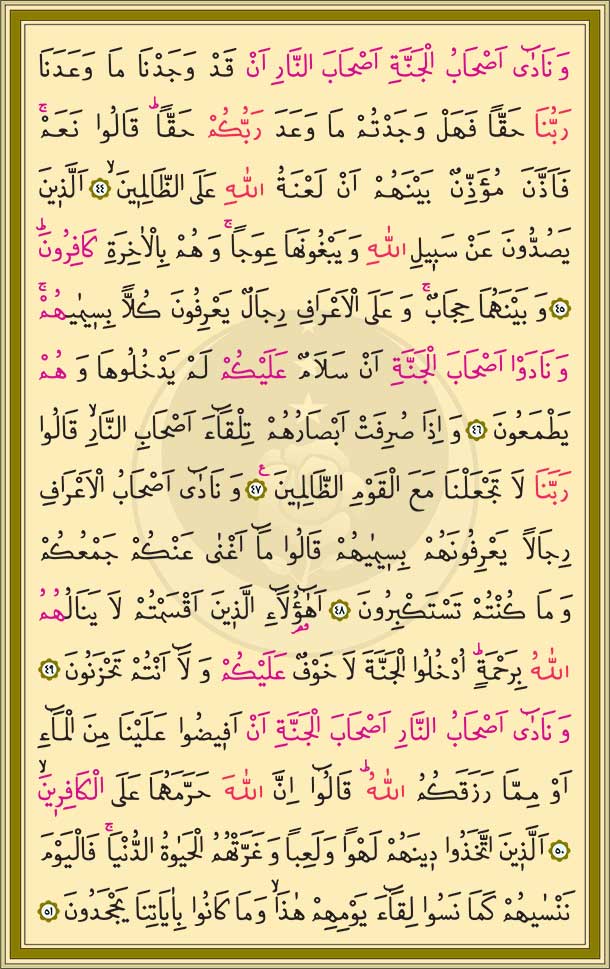 وَنَادٰٓى اَصْحَابُ الْجَنَّةِ اَصْحَابَ النَّارِ اَنْ قَدْ وَجَدْنَا مَا وَعَدَنَا
رَبُّنَا حَقًّا فَهَلْ وَجَدْتُمْ مَا وَعَدَ رَبُّكُمْ حَقًّاۜ قَالُوا نَعَمْۚ
فَاَذَّنَ مُؤَذِّنٌ بَيْنَهُمْ اَنْ لَعْنَةُ اللّٰهِ عَلَى الظَّالِم۪ينَۙ ﴿٤٤﴾ اَلَّذ۪ينَ
يَصُدُّونَ عَنْ سَب۪يلِ اللّٰهِ وَيَبْغُونَهَا عِوَجًاۚ وَهُمْ بِالْاٰخِرَةِ كَافِرُونَۜ
﴿٤٥﴾ وَبَيْنَهُمَا حِجَابٌۚ وَعَلَى الْاَعْرَافِ رِجَالٌ يَعْرِفُونَ كُلًّا بِس۪يمٰيهُمْۚ
وَنَادَوْا اَصْحَابَ الْجَنَّةِ اَنْ سَلَامٌ عَلَيْكُمْ لَمْ يَدْخُلُوهَا وَهُمْ
يَطْمَعُونَ ﴿٤٦﴾ وَاِذَا صُرِفَتْ اَبْصَارُهُمْ تِلْقَٓاءَ اَصْحَابِ النَّارِۙ قَالُوا
رَبَّنَا لَا تَجْعَلْنَا مَعَ الْقَوْمِ الظَّالِم۪ينَ ﴿٤٧﴾ ع وَنَادٰٓى اَصْحَابُ الْاَعْرَافِ
رِجَالًا يَعْرِفُونَهُمْ بِس۪يمٰيهُمْ قَالُوا مَٓا اَغْنٰى عَنْكُمْ جَمْعُكُمْ
وَمَا كُنْتُمْ تَسْتَكْبِرُونَ ﴿٤٨﴾ اَهٰٓؤُ۬لَٓاءِ الَّذ۪ينَ اَقْسَمْتُمْ لَا يَنَالُهُمُ
اللّٰهُ بِرَحْمَةٍۜ اُدْخُلُوا الْجَنَّةَ لَا خَوْفٌ عَلَيْكُمْ وَلَٓا اَنْتُمْ تَحْزَنُونَ ﴿٤٩﴾
وَنَادٰٓى اَصْحَابُ النَّارِ اَصْحَابَ الْجَنَّةِ اَنْ اَف۪يضُوا عَلَيْنَا مِنَ الْمَٓاءِ
اَوْ مِمَّا رَزَقَكُمُ اللّٰهُۜ قَالُٓوا اِنَّ اللّٰهَ حَرَّمَهُمَا عَلَى الْكَافِر۪ينَۙ
﴿٥٠﴾ اَلَّذ۪ينَ اتَّخَذُوا د۪ينَهُمْ لَهْوًا وَلَعِبًا وَغَرَّتْهُمُ الْحَيٰوةُ الدُّنْيَاۚ فَالْيَوْمَ
نَنْسٰيهُمْ كَمَا نَسُوا لِقَٓاءَ يَوْمِهِمْ هٰذَاۙ وَمَا كَانُوا بِاٰيَاتِنَا يَجْحَدُونَ ﴿٥١﴾